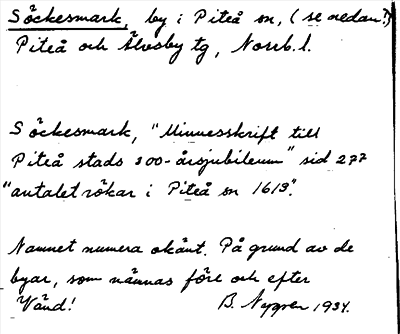 Söckesmark, by i Piteå sn, (se nedan!)
Piteå och Älvsby tg, Norrb. l.
Söckesmark, "Minnesskrift till
Piteå stads 300-årsjubileum" sid 277
"antalet rökar i Piteå sn 1613".
Namnet numera okänt. På grund av de
byar, som nämnas före och efter
Vänd! B. Nygren 1934.